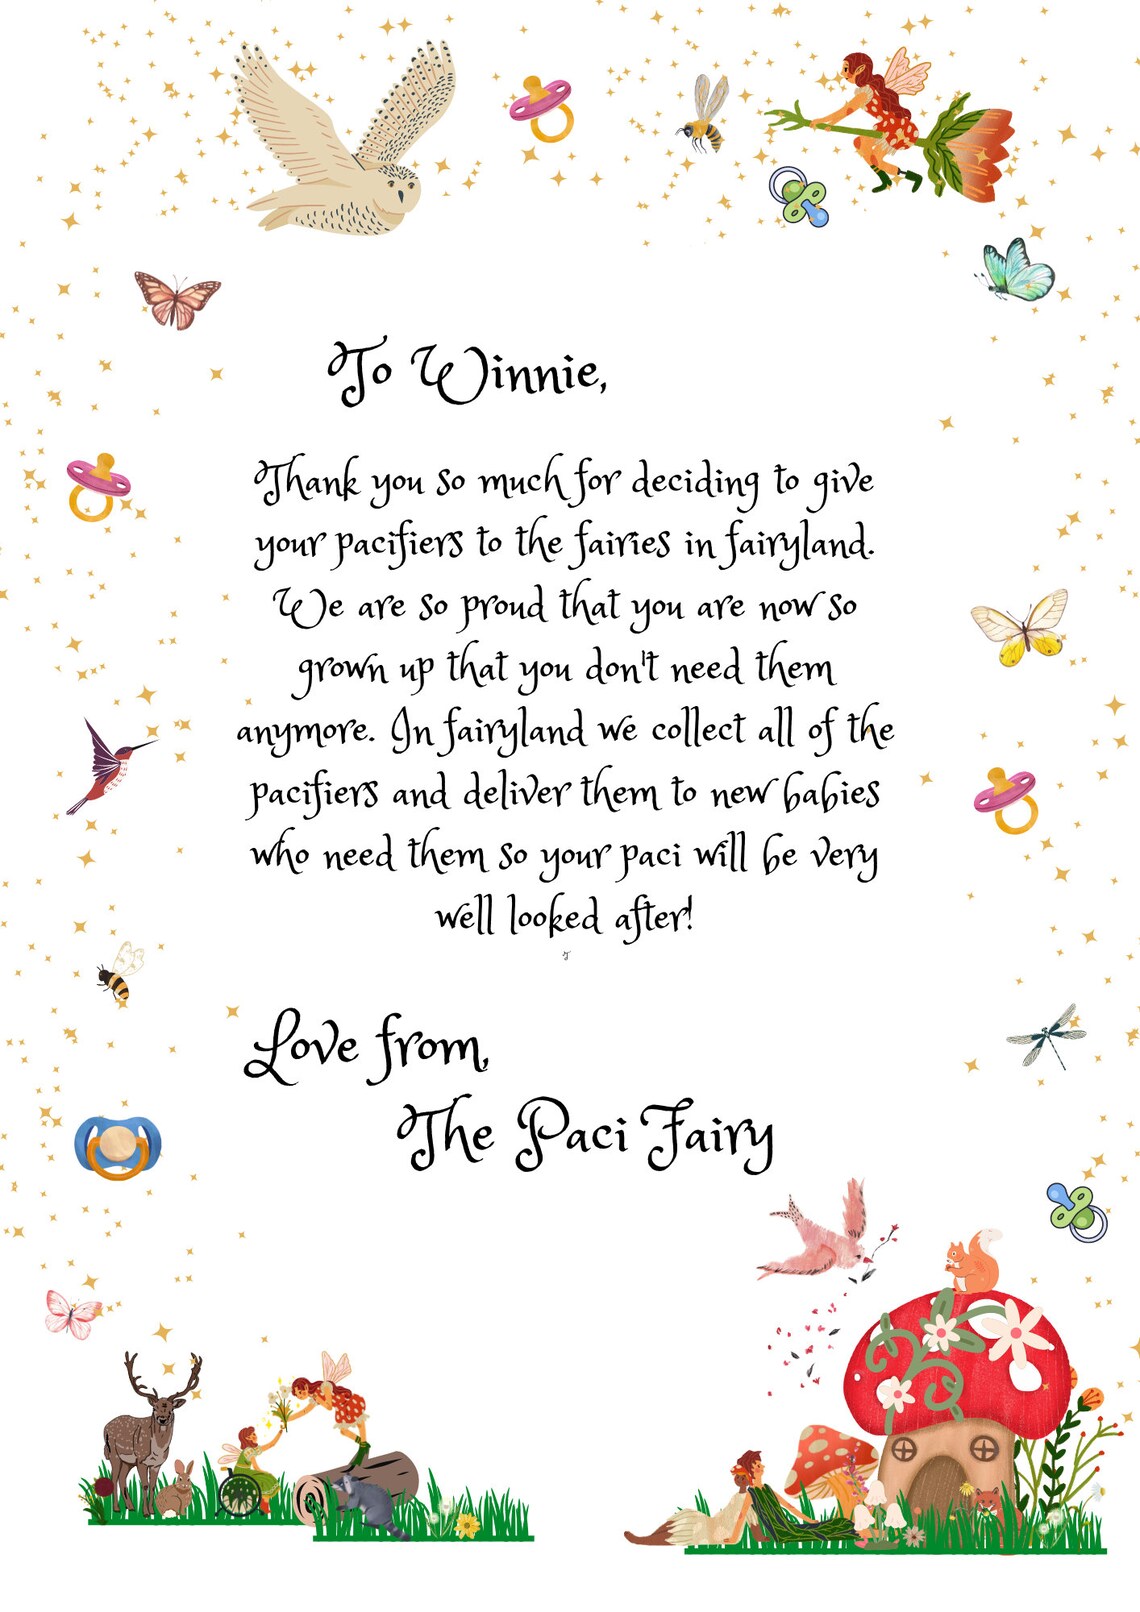 To Winnie,
Thank you so much for deciding to give
your pacifiers to the fairies in fairyland.
We are so proud that you are now so
grown up that you don't need them
anymore. In fairyland we collect all of the
pacifiers and deliver them to new babies
who need them so your paci will be very
well looked after!
Love from,
The Paci Fairy